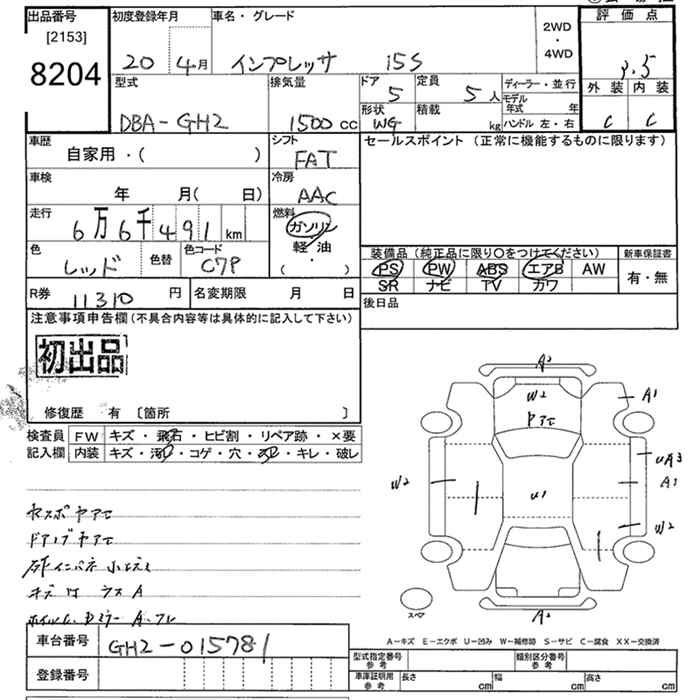 出品番号 [2153] 8204
初度登録年月 20 4月
車名・グレード インプレッサ 15S
2WD・4WD
評価点 3.5
外装 C 内装 C
型式 DBA-GH2
排気量 1500cc
ドア 5 定員 5人
形状 WG 積載 kg
ディーラー・並行
モデル年式 年
ハンドル 左・右
車歴 自家用・( )
シフト FAT
セールスポイント (正常に機能するものに限ります)
車検 年 月( 日)
冷房 AAC
走行 6万6千491km
燃料 ガソリン 軽油 ( ・ )
色 レッド 色替 色コード C7P
装備品 (純正品に限り○をつけてください) 新車保証書
PS PW ABS エアB AW 有・無
SR ナビ TV カワ
R券 11310円 名変期限 月 日
後日品
注意事項申告欄(不具合内容等は具体的に記入して下さい)
初出品
修復歴 有 〔箇所 〕
検査員 FW キズ・飛石・ヒビ割・リペア跡・×要
記入欄 内装 キズ・汚レ・コゲ・穴・スレ・キレ・破レ
A2
W2
A1
UA3
A1
W2
U1
W2
A2
スペア
キズ 外 ラス A
A-キズ E-エクボ U-凹み W-補修跡 S-サビ C-腐食 XX-交換済
車台番号 GH2-015781
登録番号
型式指定番号 参考 類別区分番号 参考
車庫証明用 参考 長さ cm 幅 cm 高さ cm